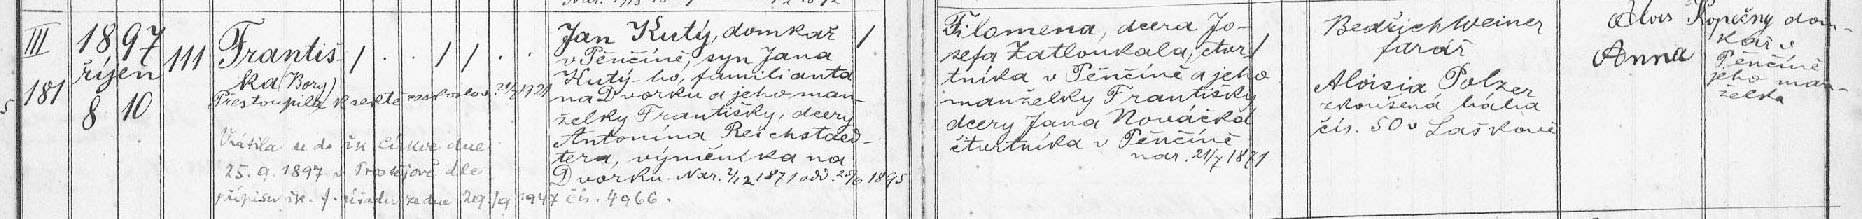 III
181
1897
říjen
8 10
111
Františ
ka (Borg)
Přestoupila k sektě českoslov. 21/1 1921
Vrátila se do řk. církve dne
25. 9. 1897 v Prostějově dle
přípisu řk. f. úřadu ze dne 29./9. 1947 čís. 4966.
Jan Kutý, domkař
v Pěnčíně, syn Jana
Kutý-ho, familianta
na Dvorku a jeho man-
želky Františky, dcery
Antonína Reichstaed-
tera, výměníka na
Dvorku. Nar. 2/12 1871 odd. 25/6 1895
Filomena, dcera Jo-
sefa Zatloukala, čtvr
tníka v Pěnčíně a jeho
manželky Františky
dcery Jana Nováčka
čtvrtníka v Pěnčíně
nar. 21/7 1871
Bedřich Weiner
farář
Aloisia Polzer
zkoušená bába
čís. 50 v Laškově
Alois
Anna
Kopečný dom-
kář v
Pěnčíně
jeho man-
želka